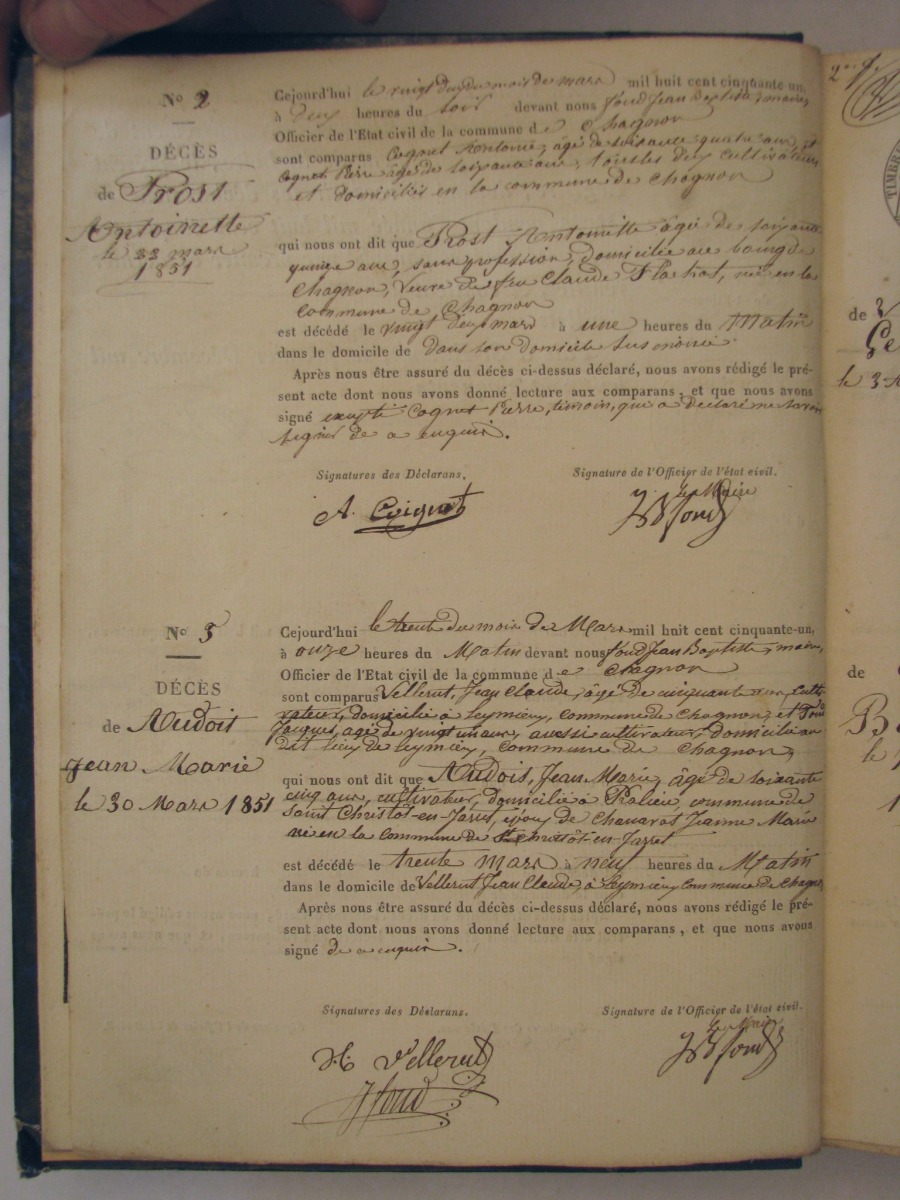 No 2
DÉCÈS
de Prost
Antoinette
le 22 mars
1851
Cejourd'hui le vingt deux du mois de mars mil huit cent cinquante un,
à deux heures du soir devant nous fond Jean Baptiste, maire,
Officier de l'Etat civil de la commune de Chagnon
sont comparus Cognet Antoine, âgé de soixante quatre ans, et
Cognet Pierre âgé de soixante ans, tous les deux cultivateurs
et domiciliés en la commune de Chagnon
qui nous ont dit que Prost Antoinette âgée de soixante
quinze ans, sans profession, domiciliée au bourg de
Chagnon, veuve de feu Claude Flachat, née en la
commune de Chagnon
est décédé le vingt deux mars à une heures du Matin
dans le domicile de dans son domicile susnommé
Après nous être assuré du décès ci-dessus déclaré, nous avons rédigé le pré-
sent acte dont nous avons donné lecture aux comparans, et que nous avons
signé excepté Cognet Pierre, témoin, qui a déclaré ne savoir
signer de a enquis.
Signatures des Déclarans.
Signature de l'Officier de l'état civil.
Le Maire
A. Coignet
JB fond
No 3
DÉCÈS
de Audois
Jean Marie
le 30 Mars 1851
Cejourd'hui le trente du mois de Mars mil huit cent cinquante-un,
à onze heures du Matin devant nous fond Jean Baptiste, maire,
Officier de l'Etat civil de la commune de Chagnon
sont comparus Vellerut, Jean Claude, âgé de cinquante ans, culti-
vateur, domicilié à Leymieux, commune de Chagnon, et fond
Jacques, âgé de vingt un ans, aussi cultivateur, domicilié au
dit lieu de Leymieux, commune de Chagnon,
qui nous ont dit que Audois, Jean Marie, âgé de soixante
cinq ans, cultivateur, domicilié à Pralieu, commune de
Saint Christôt-en-Jarret, époux de Chavarot Jeanne Marie
né en la commune de St Christôt-en-Jarret
est décédé le trente mars à neuf heures du Matin
dans le domicile de Vellerut Jean Claude, à Leymieux, commune de Chagnon
Après nous être assuré du décès ci-dessus déclaré, nous avons rédigé le pré-
sent acte dont nous avons donné lecture aux comparans, et que nous avons
signé de a enquis.
Signatures des Déclarans.
Signature de l'Officier de l'état civil.
Le Maire
Vellerut
JB fond
J fond
TIMBRE
de
le 3
de
le
1